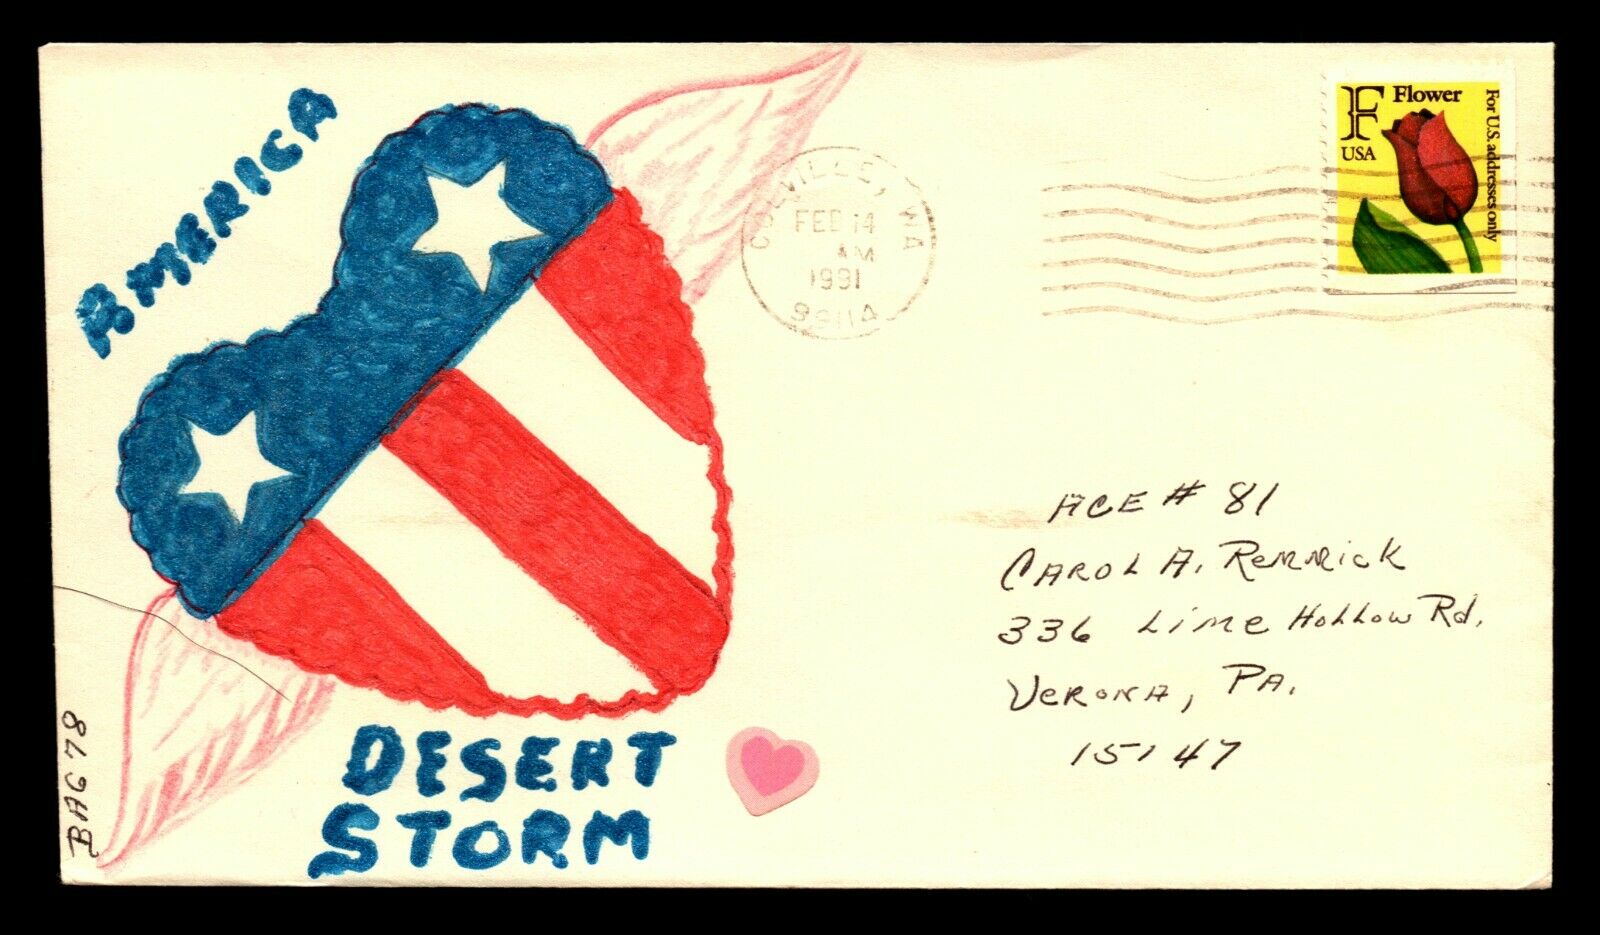 AMERICA
DESERT
STORM
BAG 78
COLVILLE, WA
FEB 14
AM
1991
99114
F Flower
USA
For U.S. addresses only
ACE # 81
CAROL A. REMMICK
336 Lime Hollow Rd.
VERONA, PA.
15147